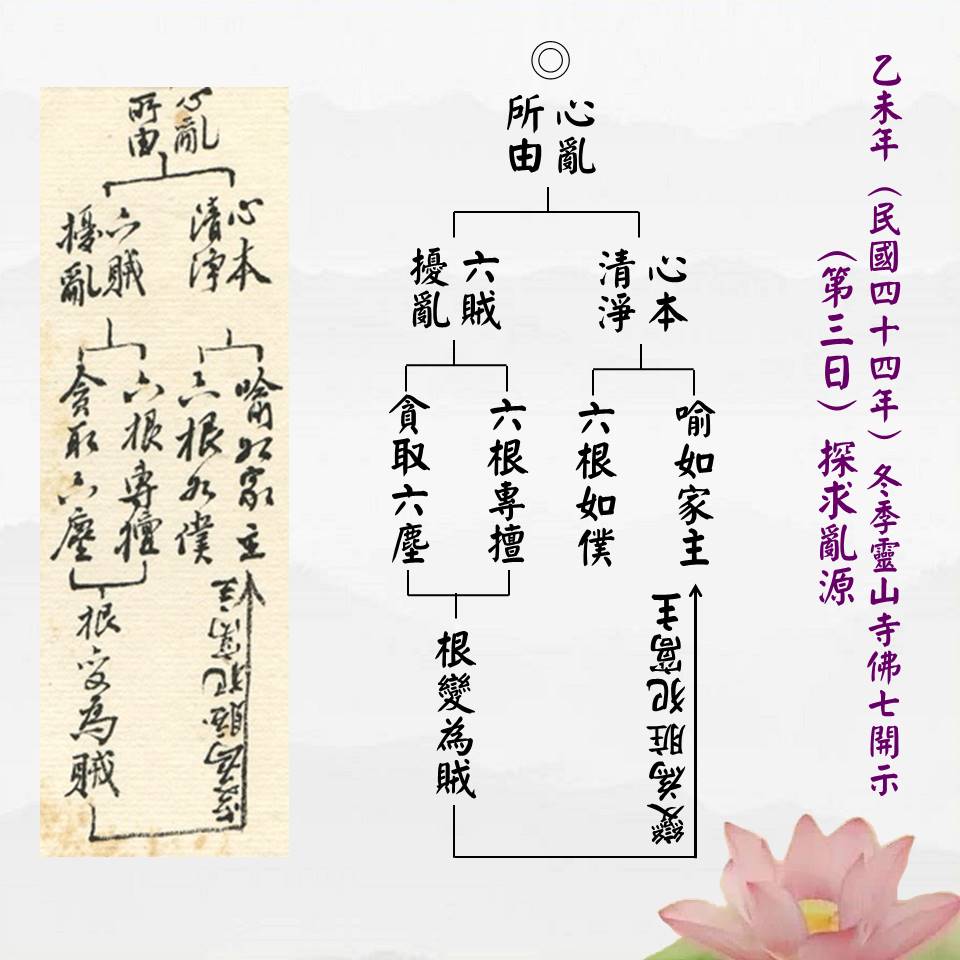 乙未年（民國四十四年）冬季靈山寺佛七開示
（第三日）探求亂源
◎
心亂
所由
心本
清淨
六賊
擾亂
喻如家主
六根如僕
六根專擅
貪取六塵
根變為賊
變為賍犯窩主
心亂
所由
心本
清淨
六賊
擾亂
喻如家主
六根如僕
六根專擅
貪取六塵
根变為賊
变為賍犯窩主